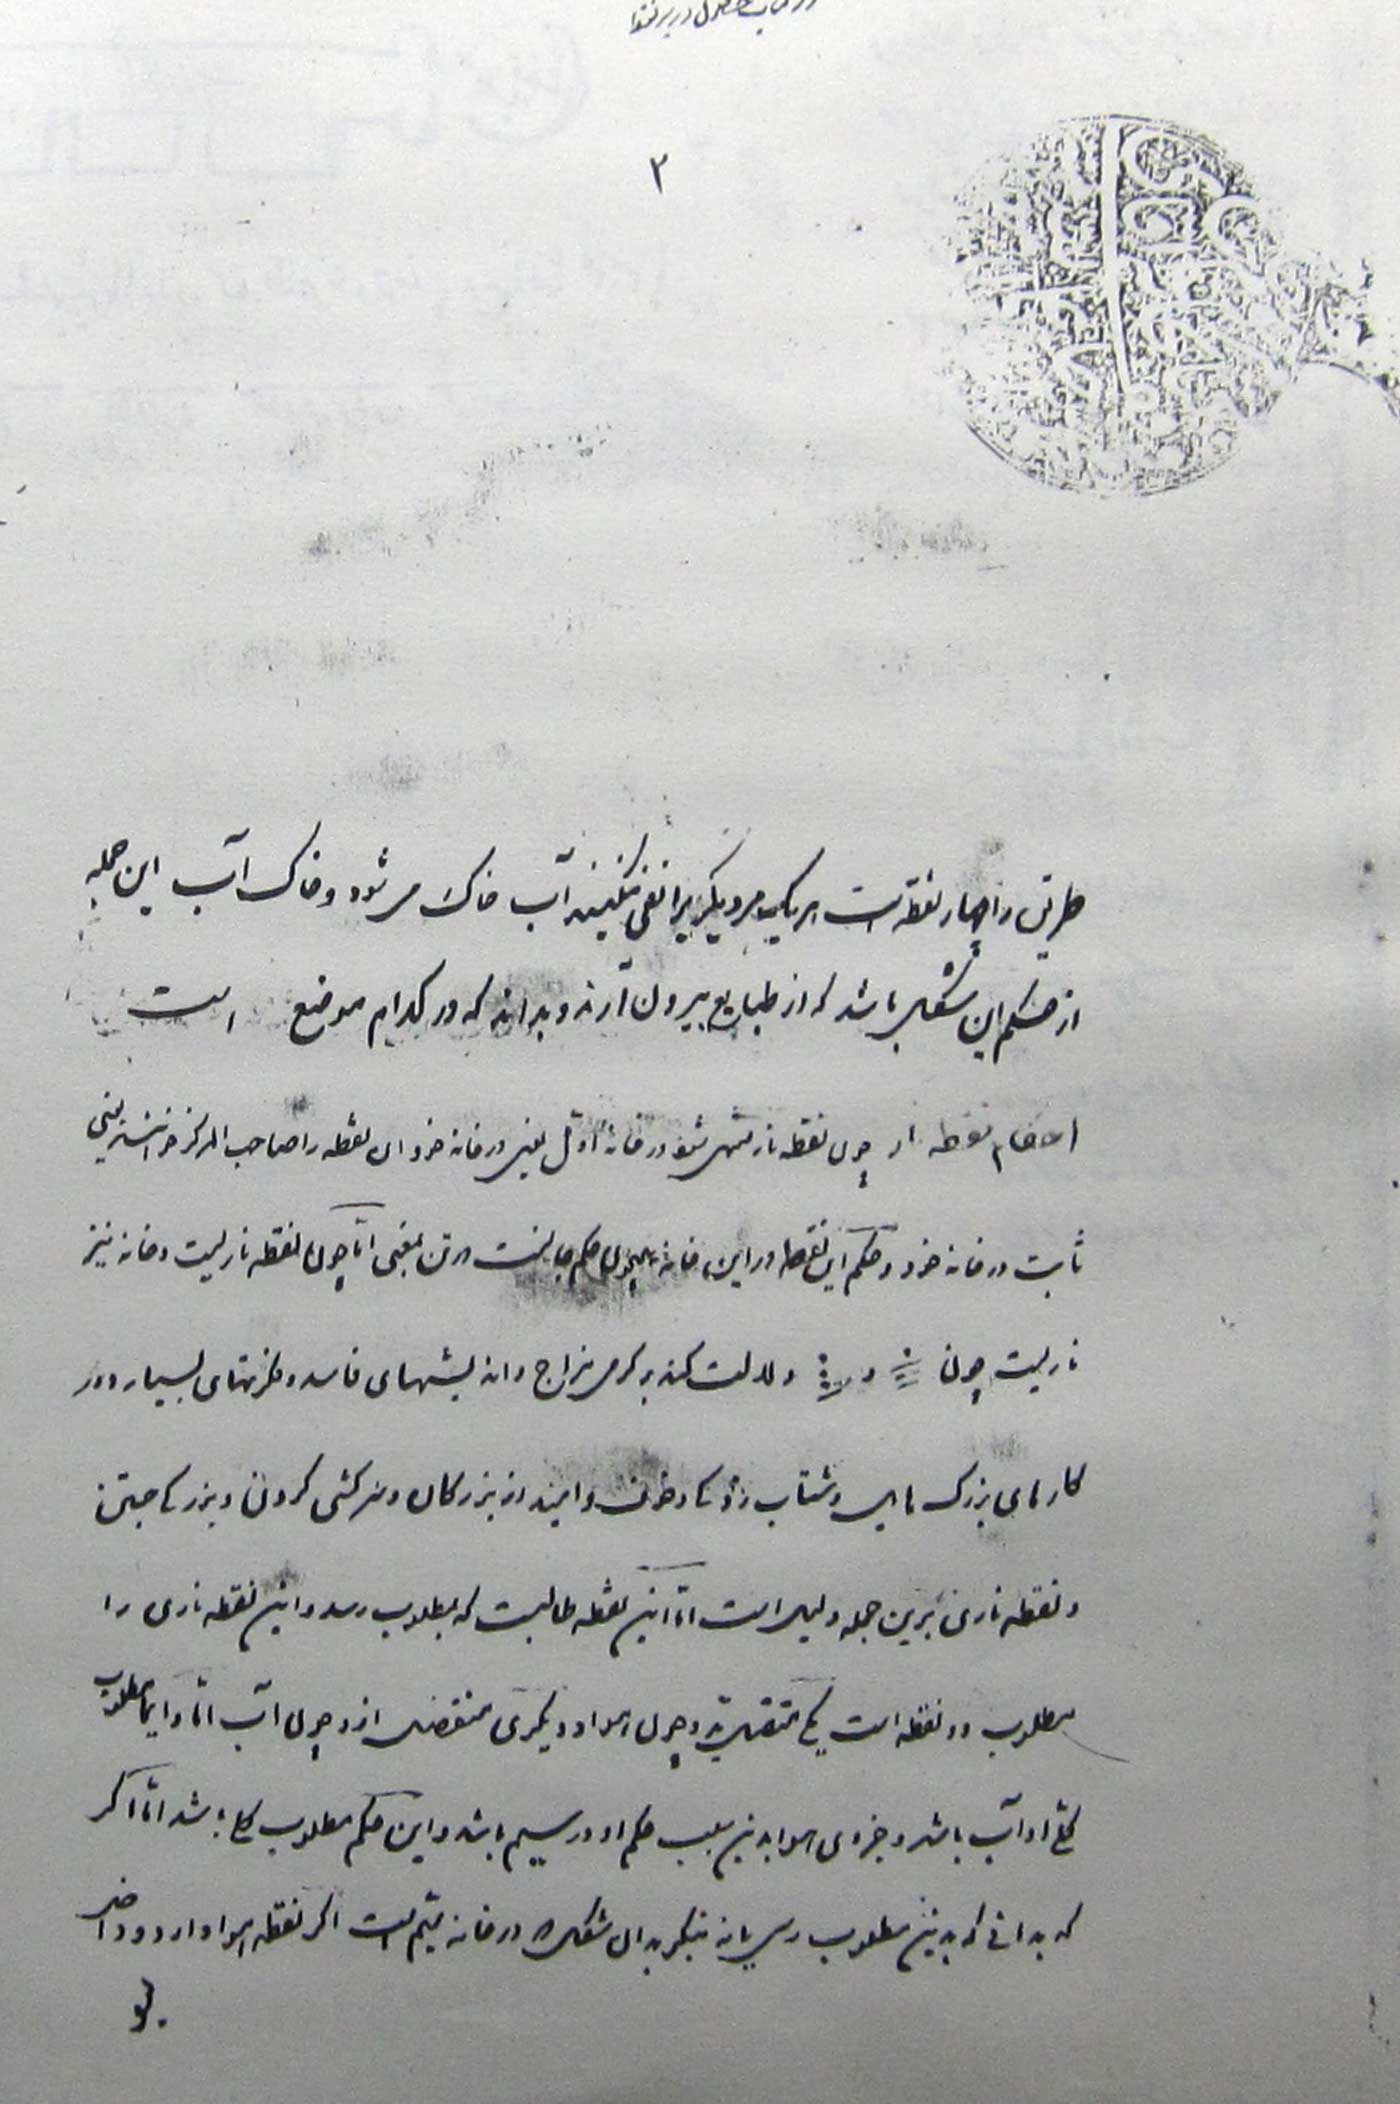 ۲
طریق را چهار نقطه است هر یک مر دیگریرا نفی نکنند آب خاک می شود و خاک آب این جمله
از حکم این شکل باشد که از طبایع بیرون آرند و بداند که در کدام موضع است
احکام نقطه نار چون نقطه نار منتهی شود در خانه اول یعنی در خانه خود ان نقطه را صاحب المرکز خوانند یعنی
ثابت در خانه خود و حکم این نقطه در این خانه همچون حکم جانست در تن اما چون نقطه ناریست و خانه نیز
ناریست چون و دلالت کند بر گرمی مزاج و اندیشهای فاسد و در
کارهای بزرگ و شتاب و امید از بزرگان و سرکشی کردن و بزرگی جستن
و نقطه ناری برین جمله دلیل است اما این نقطه طالبست که بمطلوب رسد و این نقطه ناری را
مطلوب دو نقطه است یکی و چون هوا و دیگری منفصل از و چون آب اما مطلوب
کلی او آب باشد و جزوی هوا بدین سبب حکم او در سیم باشد و این حکم مطلوب کلی باشد اما اگر
که بدانی که بدین مطلوب رسی یا نه بنگر بدان شکل که در خانه است اگر نقطه هوا دارد و